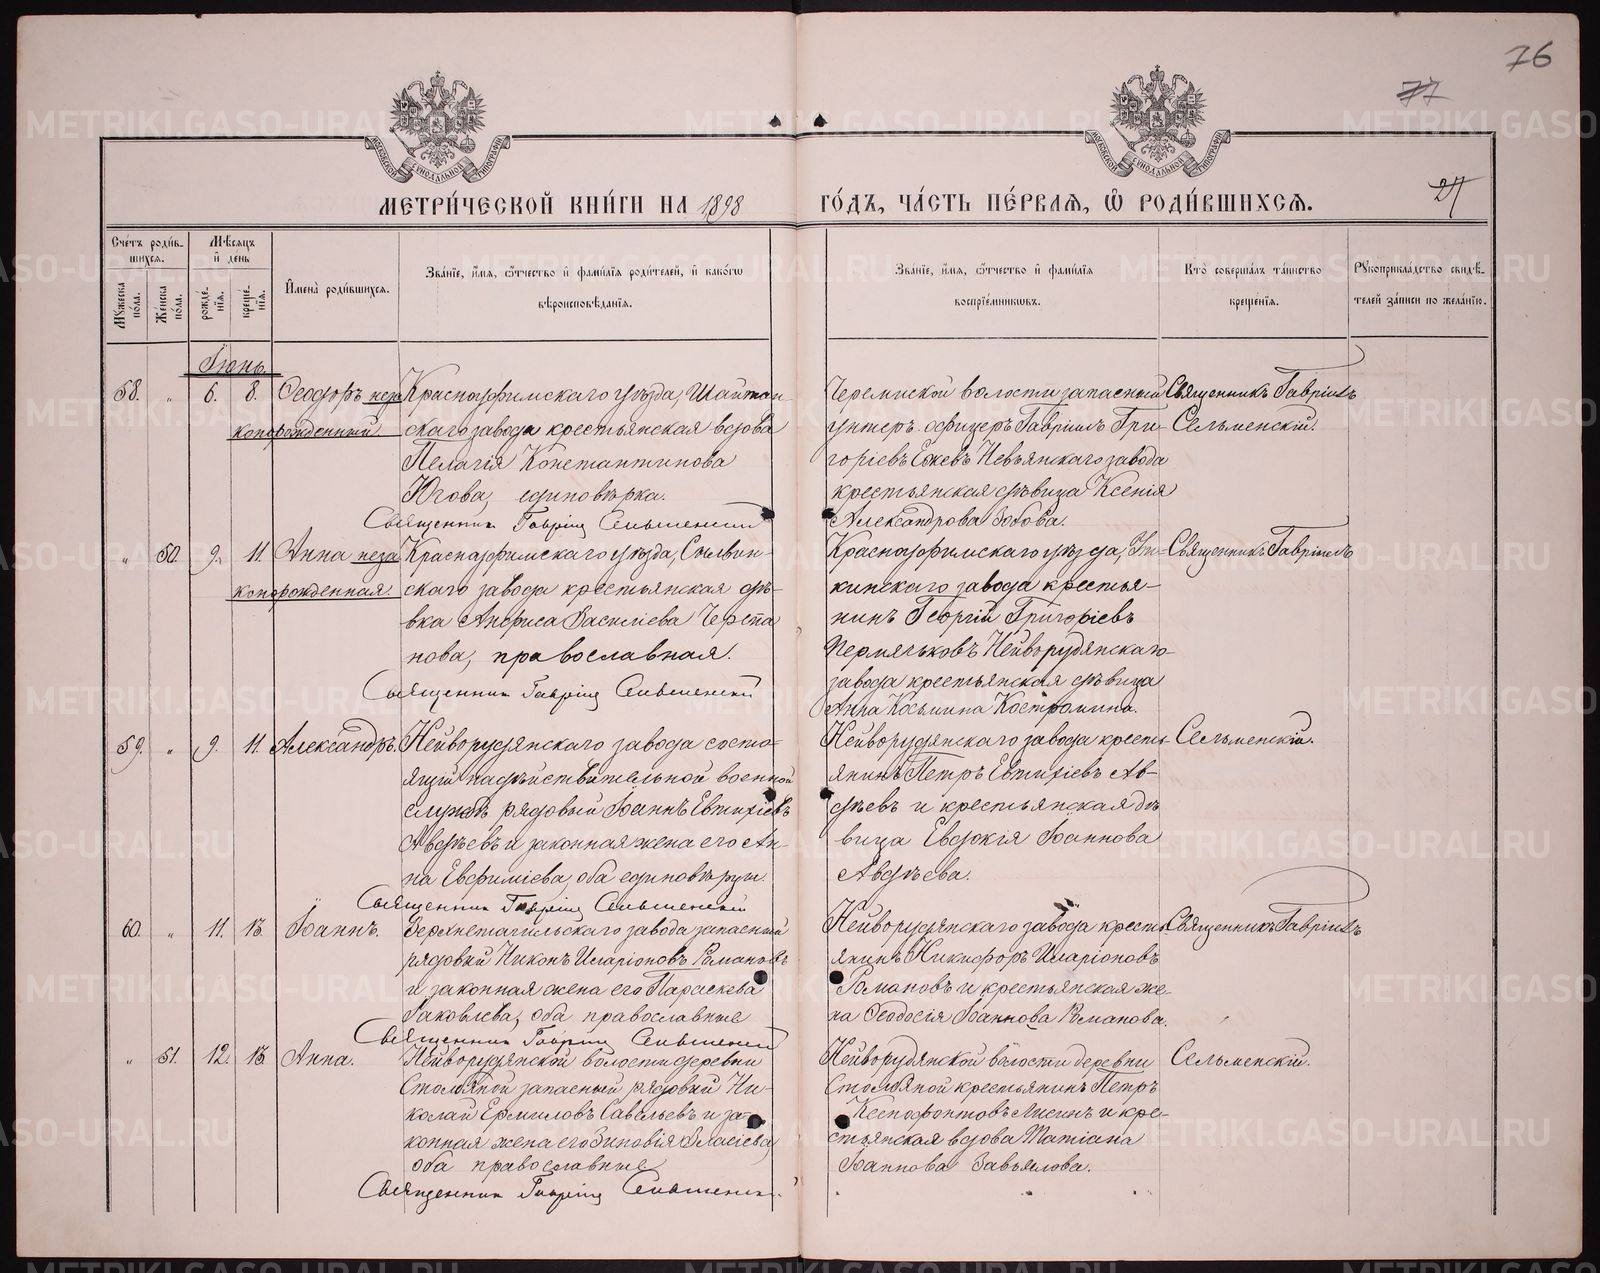 76
77
27
МЕТРИ́ЧЕСКОЙ КНИ́ГИ НА 1898
ГО́ДЪ, ЧА́СТЬ ПЕ́РВАЯ, Ѡ РОДИ́ВШИХСЯ.
Сче́тъ роди́в-
шихся.
Му́жеска по́ла.
Же́нска по́ла.
Мѣ́сяцъ и҆ день
рожде́-
нїя.
креще́-
нїя.
И҆мена̀ роди́вшихся.
Зва́нїе, и҆́мя, ѻ҆́тчество и҆ фами́лїя роди́телей, и҆ како́гѡ
вѣроисповѣ́данїя.
Зва́нїе, и҆́мя, ѻ҆́тчество и҆ фами́лїя
воспрїе́мниковъ.
Кто̀ соверша́лъ та́инство
креще́нїя.
Рꙋкоприкла́дство свидѣ́-
телей за́писи по жела́нїю.
Іюнь.
58. " 6. 8. Ѳеодоръ неза
конорожденный
Красноуфимскаго уѣзда, Шайтан-
скаго завода крестьянская вдова
Пелагія Константинова
Югова, единовѣрка.
Священник Гавріил Сельменский
Черемиской волости запасный
унтеръ офицеръ Гавріилъ Гри-
горіевъ Ежевъ Невьянскаго завода
крестьянская дѣвица Ксенія
Александрова Зобова.
Священникъ Гавріилъ
Сельменскій.
" 50. 9. 11. Анна неза
конорожденная
Красноуфимскаго уѣзда, Сылвин-
скаго завода крестьянская дѣ-
вка Анфиса Василіева Черепа
нова, православная.
Священник Гавріил Сельменский
Красноуфимскаго уѣзда,
кинскаго завода крестья-
нинъ Георгій Григоріевъ
Пермяковъ Нейворудянскаго
завода крестьянская дѣвица
Анна Косьмина Костромина.
Священникъ Гавріилъ
59. " 9. 11. Александръ.
Нейворудянскаго завода состо-
ящій на дѣйствительной военной
службѣ рядовый Іоаннъ Евтихіевъ
Авдѣевъ и законная жена его Ан-
на Евфиміева, оба единовѣрцы.
Священник Гавріил Сельменский
Нейворудянскаго завода кресть-
янинъ Петръ Евтихіевъ Ав-
дѣевъ и крестьянская дѣ
вица Евдокія Іоаннова
Авдѣева.
Сельменскій.
60. " 11. 13. Іоаннъ.
Верхнетагильскаго завода запасный
рядовый Никонъ Иларіоновъ Романовъ
и законная жена его Параскева
Іаковлева, оба православные
Священник Гавріил Сельменский
Нейворудянскаго завода кресть-
янинъ Никифоръ Иларіоновъ
Романовъ и крестьянская же-
на Ѳеодосія Іоаннова Романова.
Священникъ Гавріилъ
" 51. 12. 13. Анна.
Нейворудянской волости деревни
Столбяной запасный рядовый Ни-
колай Ермиловъ Савельевъ и за-
конная жена его Зиновія Власіева,
оба православные
Священник Гавріил Сельменский.
Нейворудянской волости деревни
Столбяной крестьянинъ Петръ
Ксенофонтовъ Лисинъ и кре-
стьянская вдова Татіана
Іоаннова Завьялова.
Сельменскій.
METRIKI.GASO-URAL.RU